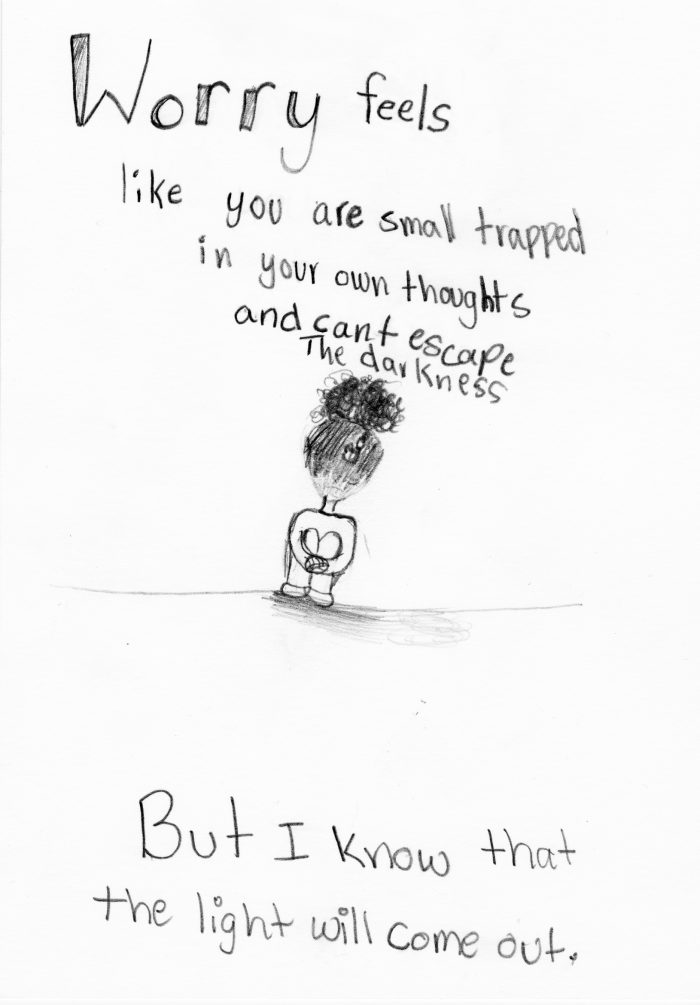 Worry feels
like you are small trapped
in your own thoughts
and cant escape
The darkness
But I know that
the light will come out.